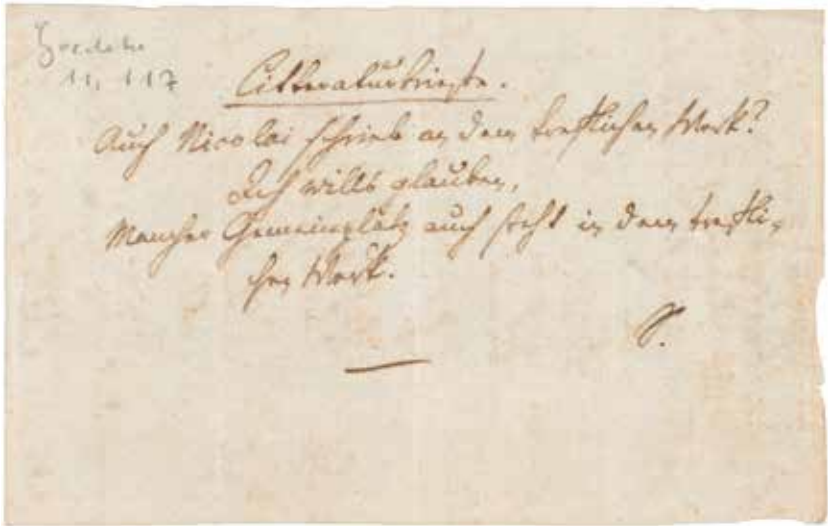 Goedeke
11, 117
Litteraturbriefe.
Auch Nicolai schrieb an dem treflichen Werk?
Ich wills glauben,
Mancher Gemeinplatz auch steht in dem trefli-
chen Werk.
S.